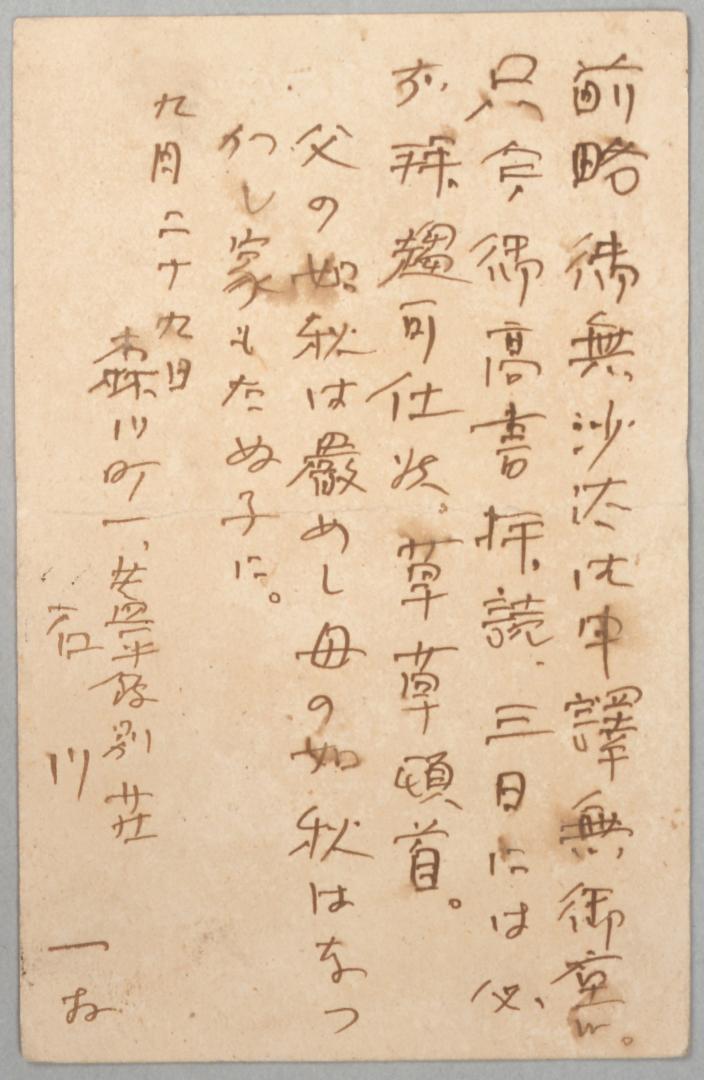 前略御無沙汰仕申譯無御座候。
只今御高書拝読、三日には必
ず拝趨可仕候。草草頓首。
父の如秋は嚴めし母の如秋はなつ
かし家もたぬ子に。
九月二十九日
森川町一、蓋平館別荘
石川一